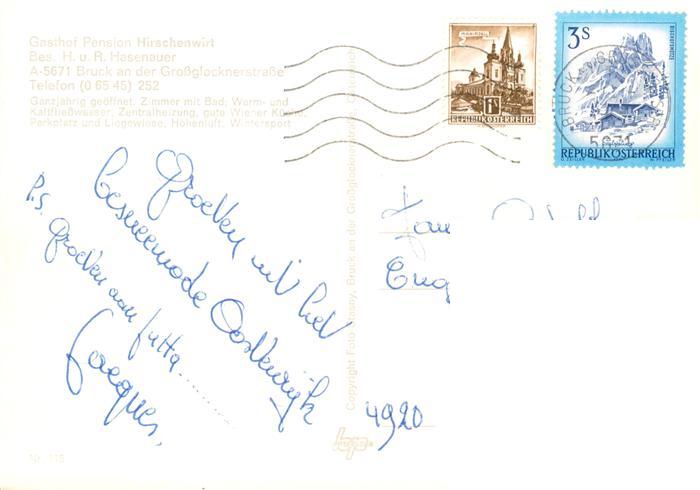 Gasthof Pension Hirschenwirt
Bes. H. u. R. Hasenauer
A-5671 Bruck an der Großglocknerstraße
Telefon (0 65 45) 252
Ganzjährig geöffnet, Zimmer mit Bad, Warm- und
Kaltfließwasser, Zentralheizung, gute Wiener Küche,
Parkplatz und Liegewiese, Höhenluft, Wintersport
MARIAZELL
1S
REPUBLIK ÖSTERREICH
3S
BISCHOFSMÜTZE
REPUBLIK ÖSTERREICH
O. ZEILER
W. PFEILER
BRUCK
5671
Groeten uit het
besneeuwde Oostenrijk
Jacques.
P.S. Groeten van Jutta..........
Copyright Foto Stasny, Bruck an der Großglocknerstrasse, Österreich
Jan
Eng
4920
Nr. 115